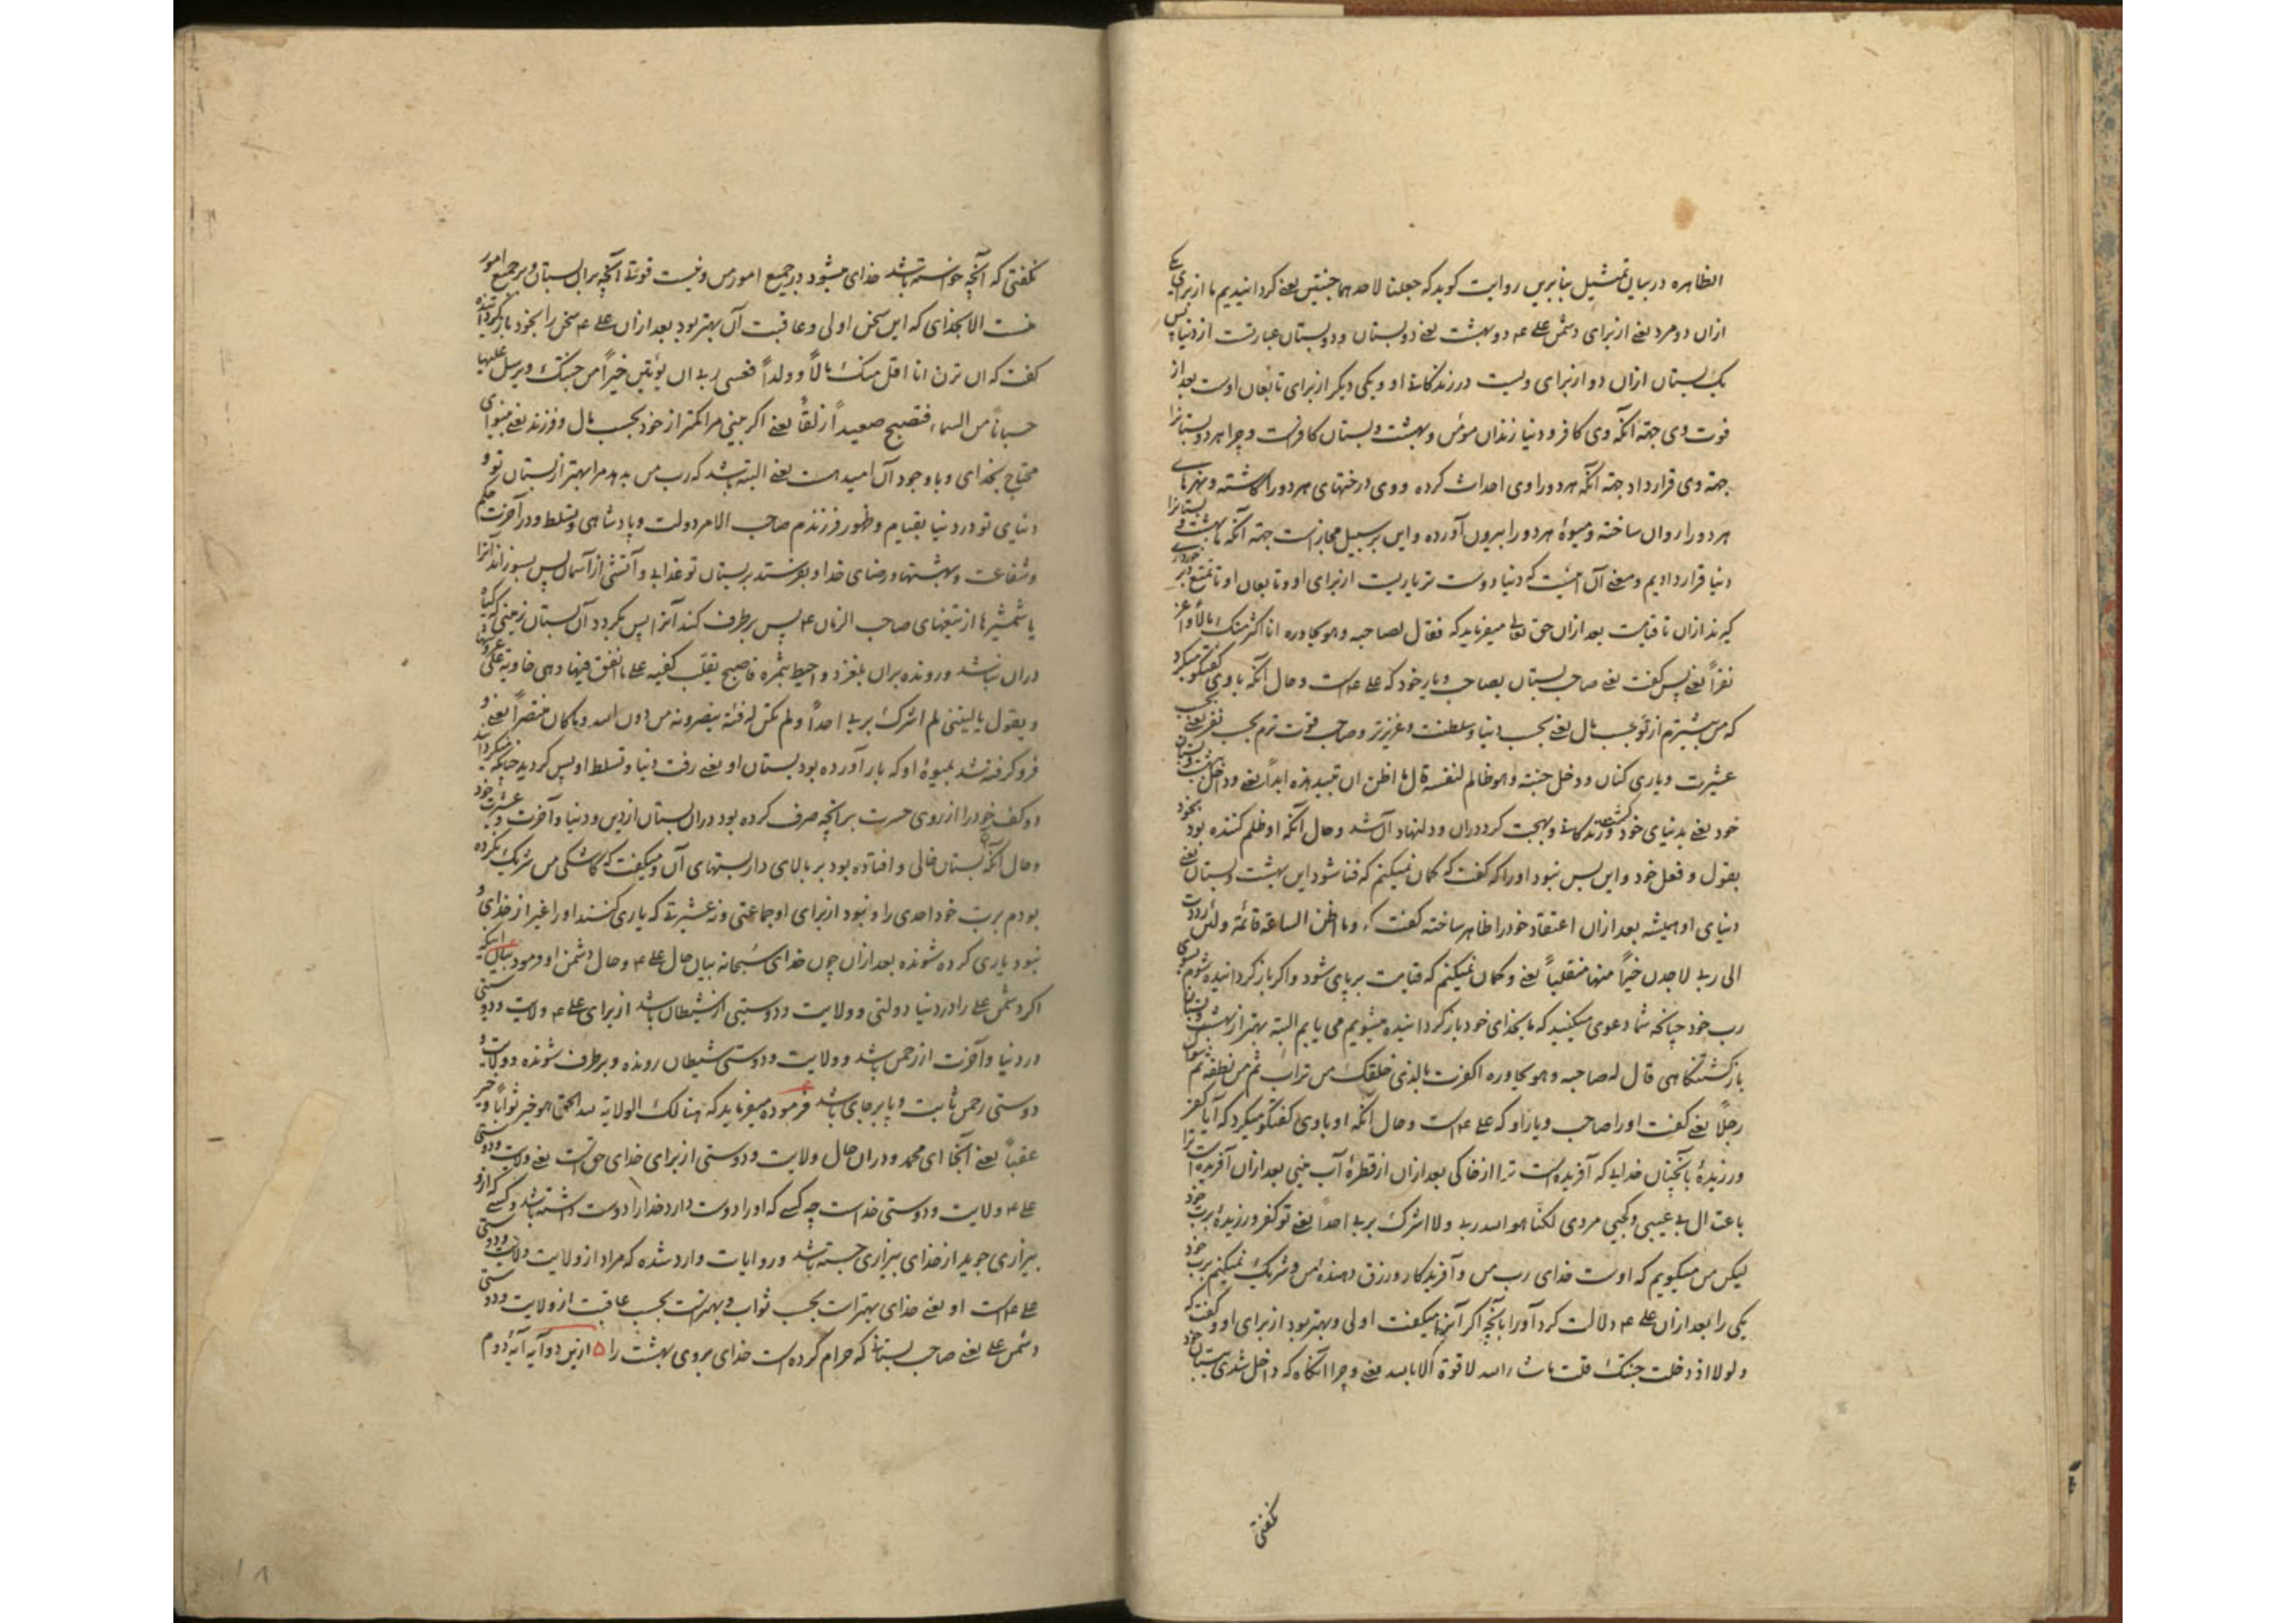 الظاهره در بیان تمثیل بنا برین روایت کوید که جعلنا لاحدهما جنتین یعنے کردانیدیم ما از برای یکے
ازان دو مرد یعنے از برای دشمن علے ع دو بهشت یعنے دو بستان و دو بستان عبارتست از دنیا پس
یک بستان ازان دو از برای ویست در زندکانے او و یکی دیکر از برای تابعان اوست بعد از
فوت وی جهته آنکه وی کافر و دنیا زندان مؤمن و بهشت و بستان کافرست و چرا هر دو بستانرا
جهته وی قرار داد جهته آنکه هر دو را وی احداث کرده و وی درختهای هر دو را کاشته و نهرهاے
هر دو را روان ساخته و میوهٔ هر دو را بیرون آورده و این بر سبیل مجازست جهته آنکه ما بهشت و بستانرا
دنیا قرار دادیم و معنے آن آنست که دنیا دوست تر یاریست از برای او و تابعان او تا تمتع و برخوردارے
کیرند ازان تا قیامت بعد ازان حق تعالے میفرماید که فقال لصاحبه و هو یحاوره انا اکثر منک مالاً و اعز
نفراً یعنے پس کفت یعنے صاحب بستان بصاحب و یار خود که علے ع است و حال آنکه با وی کفتکو میکرد
که من بیشترم از تو بحسب مال یعنے بحسب دنیا و سلطنت و عزیزتر و صاحب قوت ترم بحسب نفر یعنے بحسب
عشیرت و یاری کنان و دخل جنته و هو ظالم لنفسه قال ما اظن ان تبید هذه ابداً یعنے و داخل بهشت و بستان
خود یعنے بدنیای خود کشت و در زندکانے و بهجت کرد دران و دلنهاد آن شد و حال آنکه او ظلم کننده بود بخود
بقول و فعل خود و این بس نبود او را که کفت که کمان نمیکنم که فنا شود این بهشت و بستان یعنے
دنیای او همیشه بعد ازان اعتقاد خود را ظاهر ساخته کفت که و ما اظن الساعة قائمة و لئن رددت
الی ربے لاجدن خیراً منها منقلباً یعنے و کمان نمیکنم که قیامت برپای شود و اکر بازکردانیده شوم بسوی
رب خود چنانچه شما دعوی میکنید که ما بخدای خود بازکردانیده میشویم می یابم البته بهتر از بهشت و بستان
بازکشتنکاهی قال له صاحبه و هو یحاوره اکفرت بالذی خلقک من تراب ثم من نطفة ثم سواک
رجلاً یعنے کفت او را صاحب و یار او که علے ع است و حال آنکه او با وی کفتکو میکرد که آیا کفر
ورزیدهٔ بآنچنان خدایے که آفریده است ترا از خاکی بعد ازان از قطرهٔ آب منی بعد ازان آفریده است ترا
باعتدال بے عیبی و کجیی مردی لکنا هو الله ربے و لا اشرک بربے احداً یعنے تو کفر ورزیدهٔ برب خود
لیکن من میکویم که اوست خدای رب من و آفریدکار و رزق دهندهٔ من و شریک نمیکنم برب خود
یکی را بعد ازان علے ع دلالت کرد او را بآنچه اکر آنرا میکفت اولی و بهتر بود از برای او و کفت که
و لولا اذ دخلت جنتک قلت ما شاء الله لا قوة الا بالله یعنے و چرا آنکاه که داخل شدی ببستان خود
نکفتی
نکفتی که آنچه خواسته باشد خدای میشود در جمیع امور من و نیست قوتے آنچه بر آن بستان و بر جمیع امور
هست الا بخدای که این سخن اولی و عاقبت آن بهتر بود بعد ازان علے ع سخن را بخود بازکردانیده
کفت که ان ترن انا اقل منک مالاً و ولداً فعسی ربے ان یؤتین خیراً من جنتک و یرسل علیها
حسباناً من السماء فتصبح صعیداً زلقاً یعنے اکر بینی مرا کمتر از خود بحسب مال و فرزند یعنے بینوای
محتاج بخدای و با وجود آن امید است یعنے البته باشد که رب من بدهد مرا بهتر از بستان تو و
دنیای تو در دنیا بقیام و ظهور فرزندم صاحب الامر دولت و پادشاهی و تسلط و در آخرت حکم
و شفاعت و بهشتها و رضای خدا و بفرستد بر بستان تو عذابے و آتشی از آسمان پس بسوزاند آنرا
یا شمشیرها از تیغهای صاحب الزمان ع پس برطرف کند آنرا پس بکردد آن بستان زمینی که کیاه
دران نباشد و رونده بران بلغزد و احیط بثمره فاصبح یقلب کفیه علے ما انفق فیها و هی خاویة علی عروشها
و یقول یا لیتنی لم اشرک بربے احداً و لم تکن له فئة ینصرونه من دون الله و ما کان منتصراً یعنے و
فرو کرفته شد بمیوهٔ او که بار آورده بود بستان او یعنے رفت دنیا و تسلط او پس کردید چنانکه میکردانید
دو کف خود را از روی حسرت برانچه صرف کرده بود دران بستان از دین و دنیا و آخرت و عشیرت خود
و حال آنکه آن بستان خالی و افتاده بود بر بالای داربستهای آن و میکفت که کاشکی من شریک نکرده
بودم برب خود احدی را و نبود از برای او جماعتی و نه عشیرتے که یاری کنند او را غیر از خدای و
نبود یاری کرده شونده بعد ازان چون خدای سبحانه بیان حال علے ع و حال دشمن او فرمود بیان اینکه
اکر دشمن علے را در دنیا دولتی و ولایت و دوستیی از شیطان باشد از برای علے ع ولایت و دوستی
در دنیا و آخرت از رحمن باشد و ولایت و دوستی شیطان رونده و برطرف شونده و ولایت و
دوستی رحمن ثابت و پابرجای باشد فرموده میفرماید که هنالک الولایة لله الحق هو خیر ثواباً و خیر
عقباً یعنے آنجا ای محمد و دران حال ولایت و دوستی از برای خدای حق است یعنے ولایت و دوستی
علے ع ولایت و دوستی خداست چه کسے که او را دوست دارد خدا را دوست داشته باشد و کسے که ازو
بیزاری جوید از خدای بیزاری جسته باشد و روایات وارد شده که مراد از ولایت ولایت و دوستی
علے ع است او یعنے خدای بهترست بحسب ثواب و بهترست بحسب عاقبت از ولایت و دوستی
دشمن علے یعنے صاحب بستانے که حرام کرده است خدای بروی بهشت را ۵ ازین دو آیه آیهٔ دوم